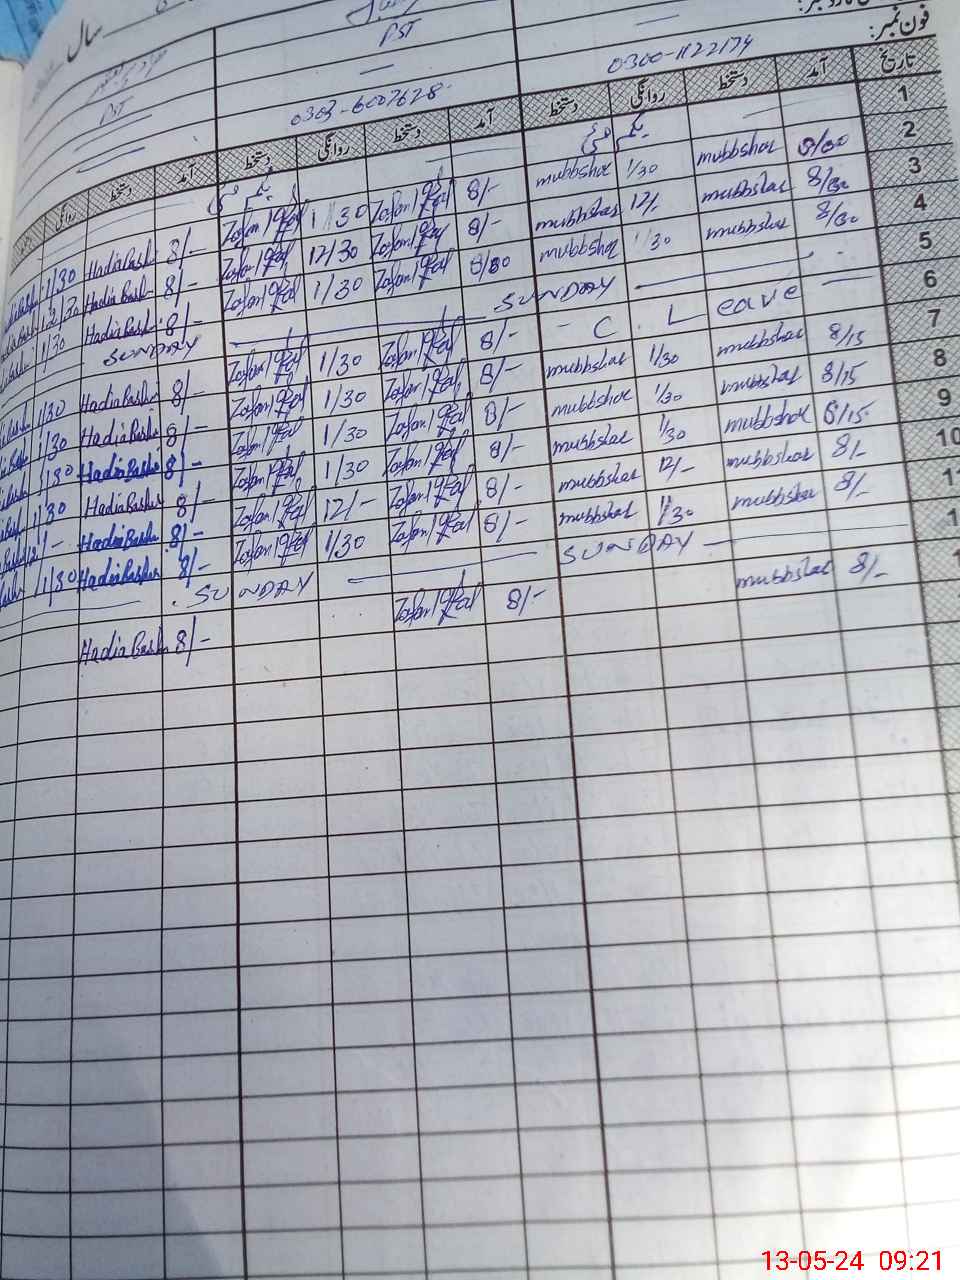 سال
PST
PST
فون نمبر:
0303-6007628
0300-1122174
تاریخ آمد دستخط روانگی دستخط آمد دستخط روانگی دستخط آمد دستخط روانگی
1 یکم مئی یکم مئی
2 8/30 mubbshar 1/30 mubbshar 8/- Zafar Iqbal 1/30 Zafar Iqbal 8/- Hadia Bashir 1/30
3 8/30 mubbshar 12/- mubbshar 8/- Zafar Iqbal 12/30 Zafar Iqbal 8/- Hadia Bashir 12/30
4 8/30 mubbshar 1/30 mubbshar 8/30 Zafar Iqbal 1/30 Zafar Iqbal 8/- Hadia Bashir 1/30
5 SUNDAY SUNDAY
6 C. Leave 8/- Zafar Iqbal 1/30 Zafar Iqbal 8/- Hadia Bashir 1/30
7 8/15 mubbshar 1/30 mubbshar 8/- Zafar Iqbal 1/30 Zafar Iqbal 8/- Hadia Bashir 1/30
8 8/15 mubbshar 1/30 mubbshar 8/- Zafar Iqbal 1/30 Zafar Iqbal 8/- Hadia Bashir 1/30
9 8/15 mubbshar 1/30 mubbshar 8/- Zafar Iqbal 1/30 Zafar Iqbal 8/- Hadia Bashir 1/30
10 8/- mubbshar 12/- mubbshar 8/- Zafar Iqbal 12/- Zafar Iqbal 8/- Hadia Bashir 12/-
1 8/- mubbshar 1/30 mubbshar 8/- Zafar Iqbal 1/30 Zafar Iqbal 8/- Hadia Bashir 1/30
1 SUNDAY SUNDAY
1 8/- mubbshar 8/- Zafar Iqbal 8/- Hadia Bashir
13-05-24 09:21